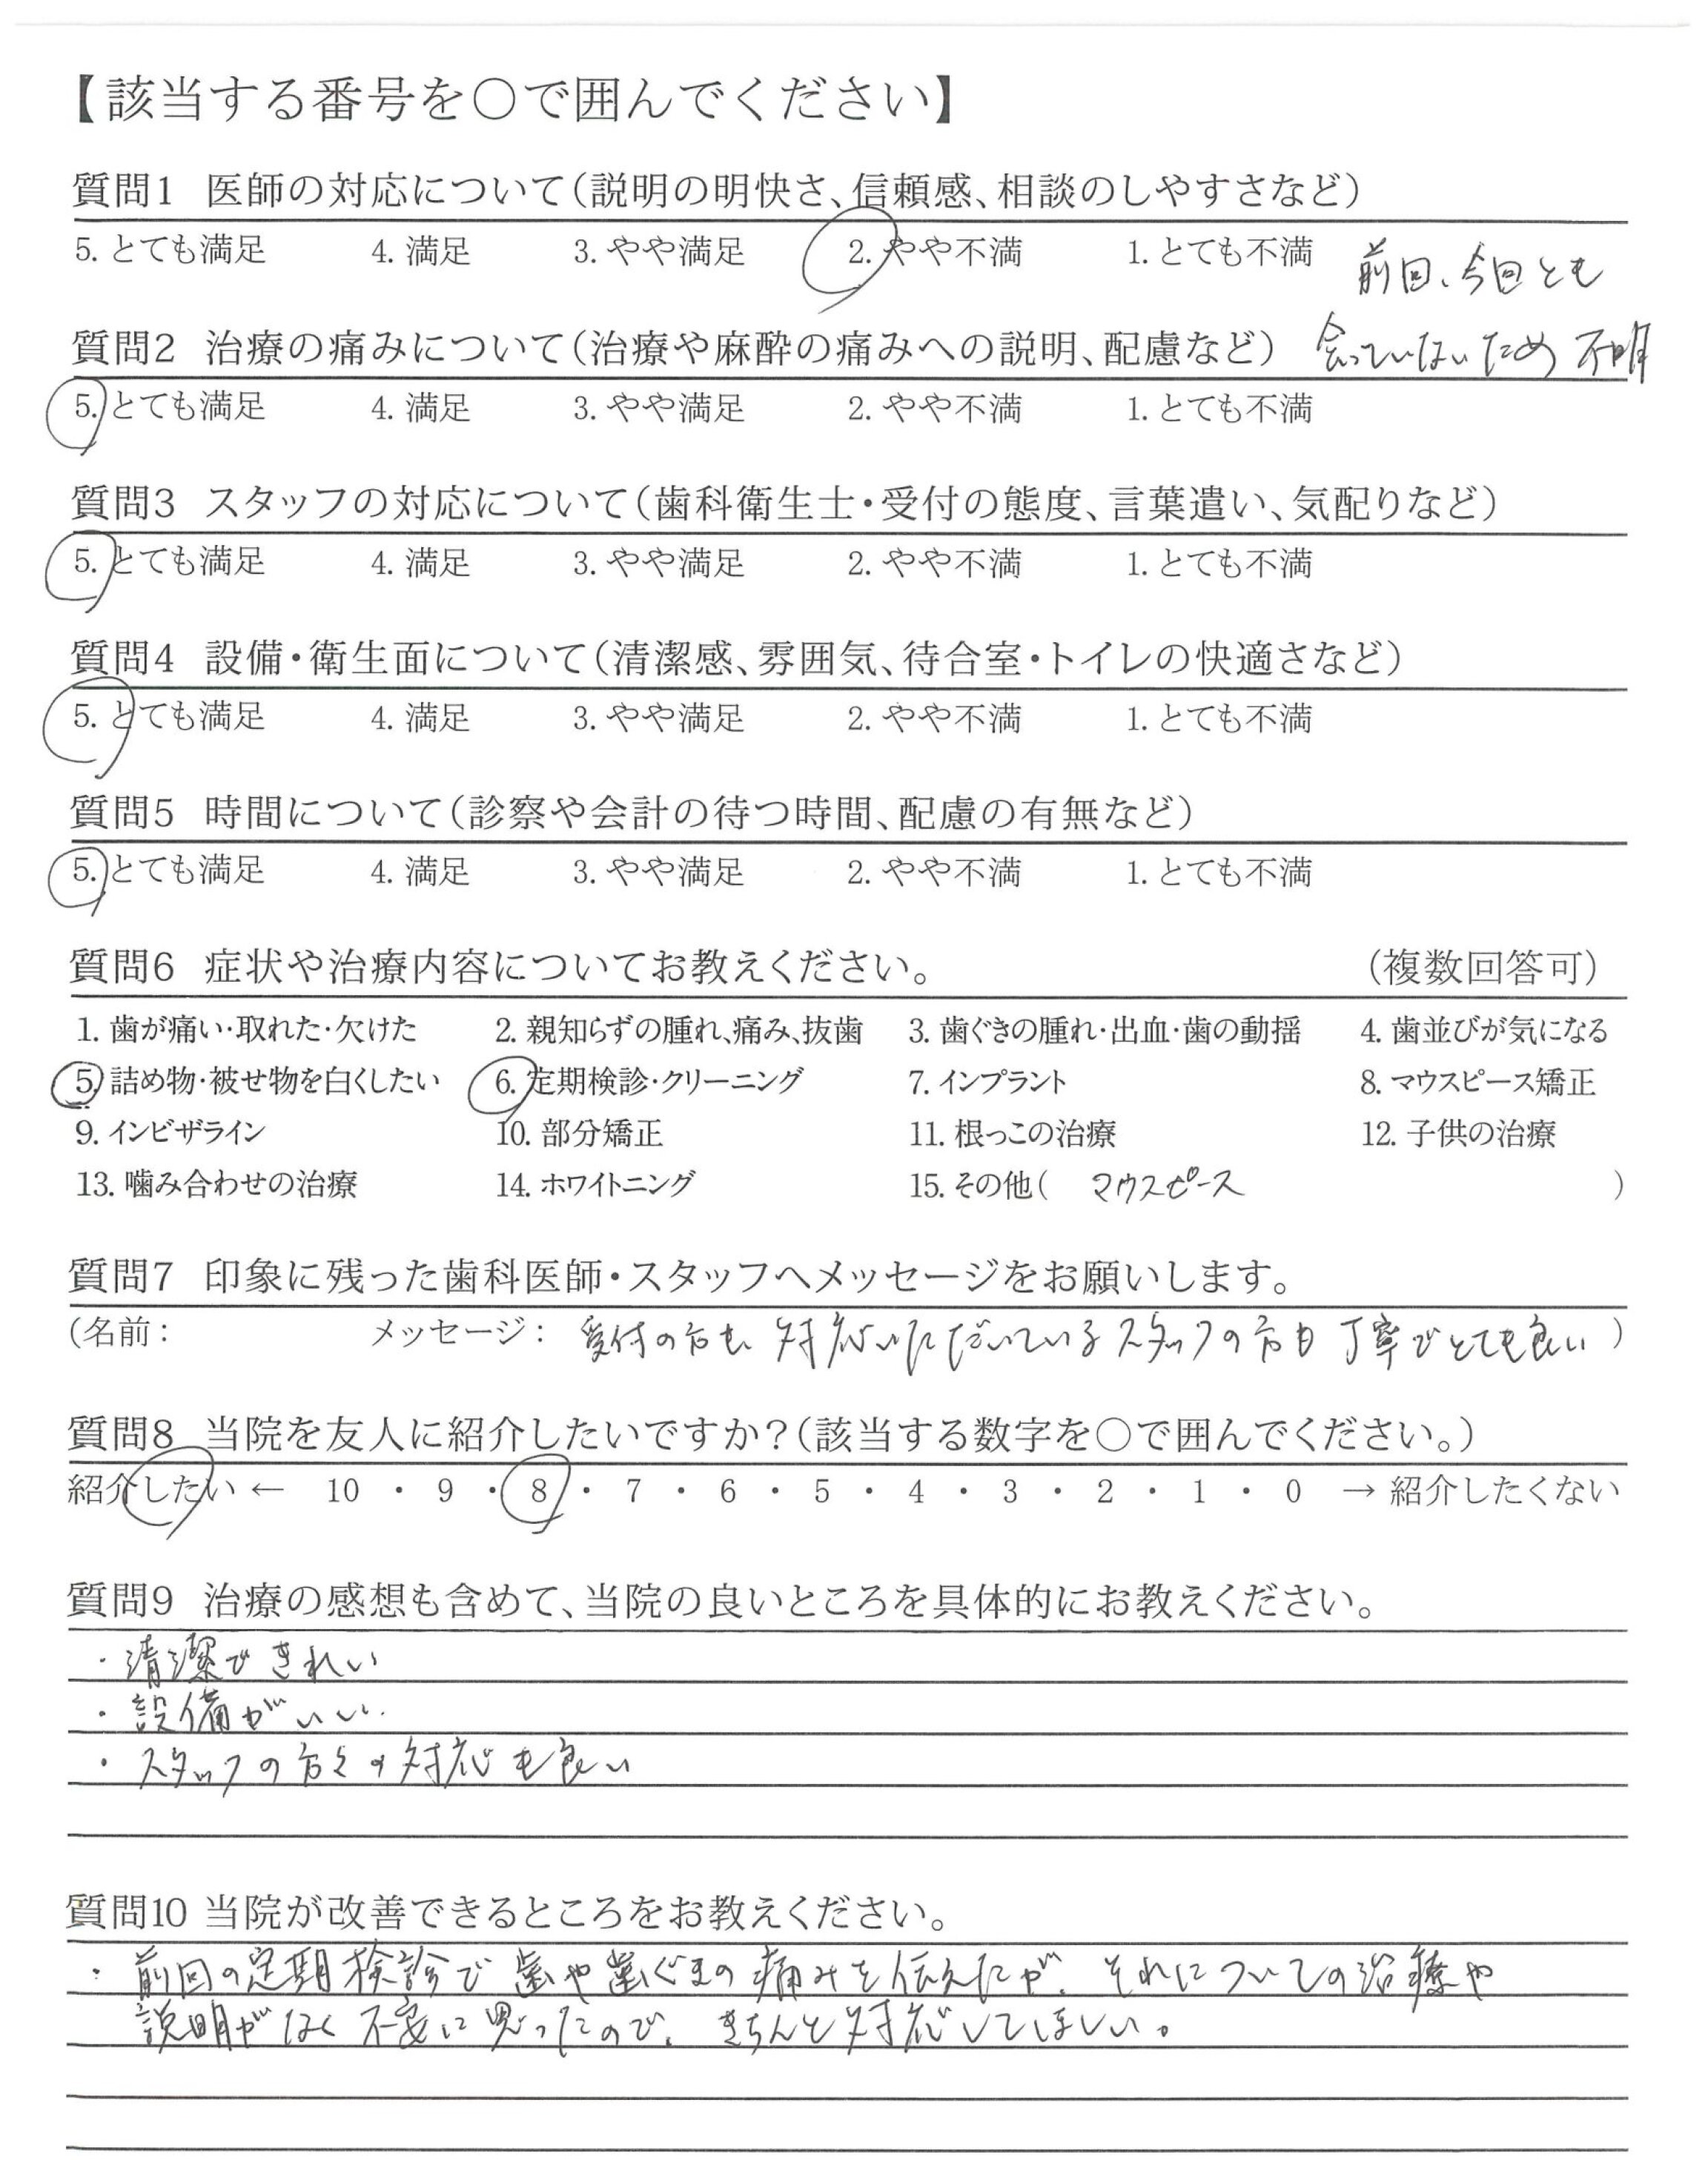 【該当する番号を〇で囲んでください】
質問1 医師の対応について(説明の明快さ、信頼感、相談のしやすさなど)
5. とても満足 4. 満足 3. やや満足 2. やや不満 1. とても不満 前回、今回とも
質問2 治療の痛みについて(治療や麻酔の痛みへの説明、配慮など) 会っていないため 不明
5. とても満足 4. 満足 3. やや満足 2. やや不満 1. とても不満
質問3 スタッフの対応について(歯科衛生士・受付の態度、言葉遣い、気配りなど)
5. とても満足 4. 満足 3. やや満足 2. やや不満 1. とても不満
質問4 設備・衛生面について(清潔感、雰囲気、待合室・トイレの快適さなど)
5. とても満足 4. 満足 3. やや満足 2. やや不満 1. とても不満
質問5 時間について(診察や会計の待つ時間、配慮の有無など)
5. とても満足 4. 満足 3. やや満足 2. やや不満 1. とても不満
質問6 症状や治療内容についてお教えください。 (複数回答可)
1. 歯が痛い・取れた・欠けた 2. 親知らずの腫れ、痛み、抜歯 3. 歯ぐきの腫れ・出血・歯の動揺 4. 歯並びが気になる
5. 詰め物・被せ物を白くしたい 6. 定期検診・クリーニング 7. インプラント 8. マウスピース矯正
9. インビザライン 10. 部分矯正 11. 根っこの治療 12. 子供の治療
13. 噛み合わせの治療 14. ホワイトニング 15. その他( マウスピース )
質問7 印象に残った歯科医師・スタッフへメッセージをお願いします。
(名前: メッセージ: 受付の方も 対応いただいているスタッフの方も 丁寧でとても良い )
質問8 当院を友人に紹介したいですか?(該当する数字を〇で囲んでください。)
紹介したい ← 10 ・ 9 ・ 8 ・ 7 ・ 6 ・ 5 ・ 4 ・ 3 ・ 2 ・ 1 ・ 0 → 紹介したくない
質問9 治療の感想も含めて、当院の良いところを具体的にお教えください。
・清潔で きれい
・設備が いい
・スタッフの方々の対応も良い
質問10 当院が改善できるところをお教えください。
・前回の定期検診で 歯や歯ぐきの痛みを伝えたが、それについての治療や
説明がなく 不安に思ったので、きちんと対応してほしい。